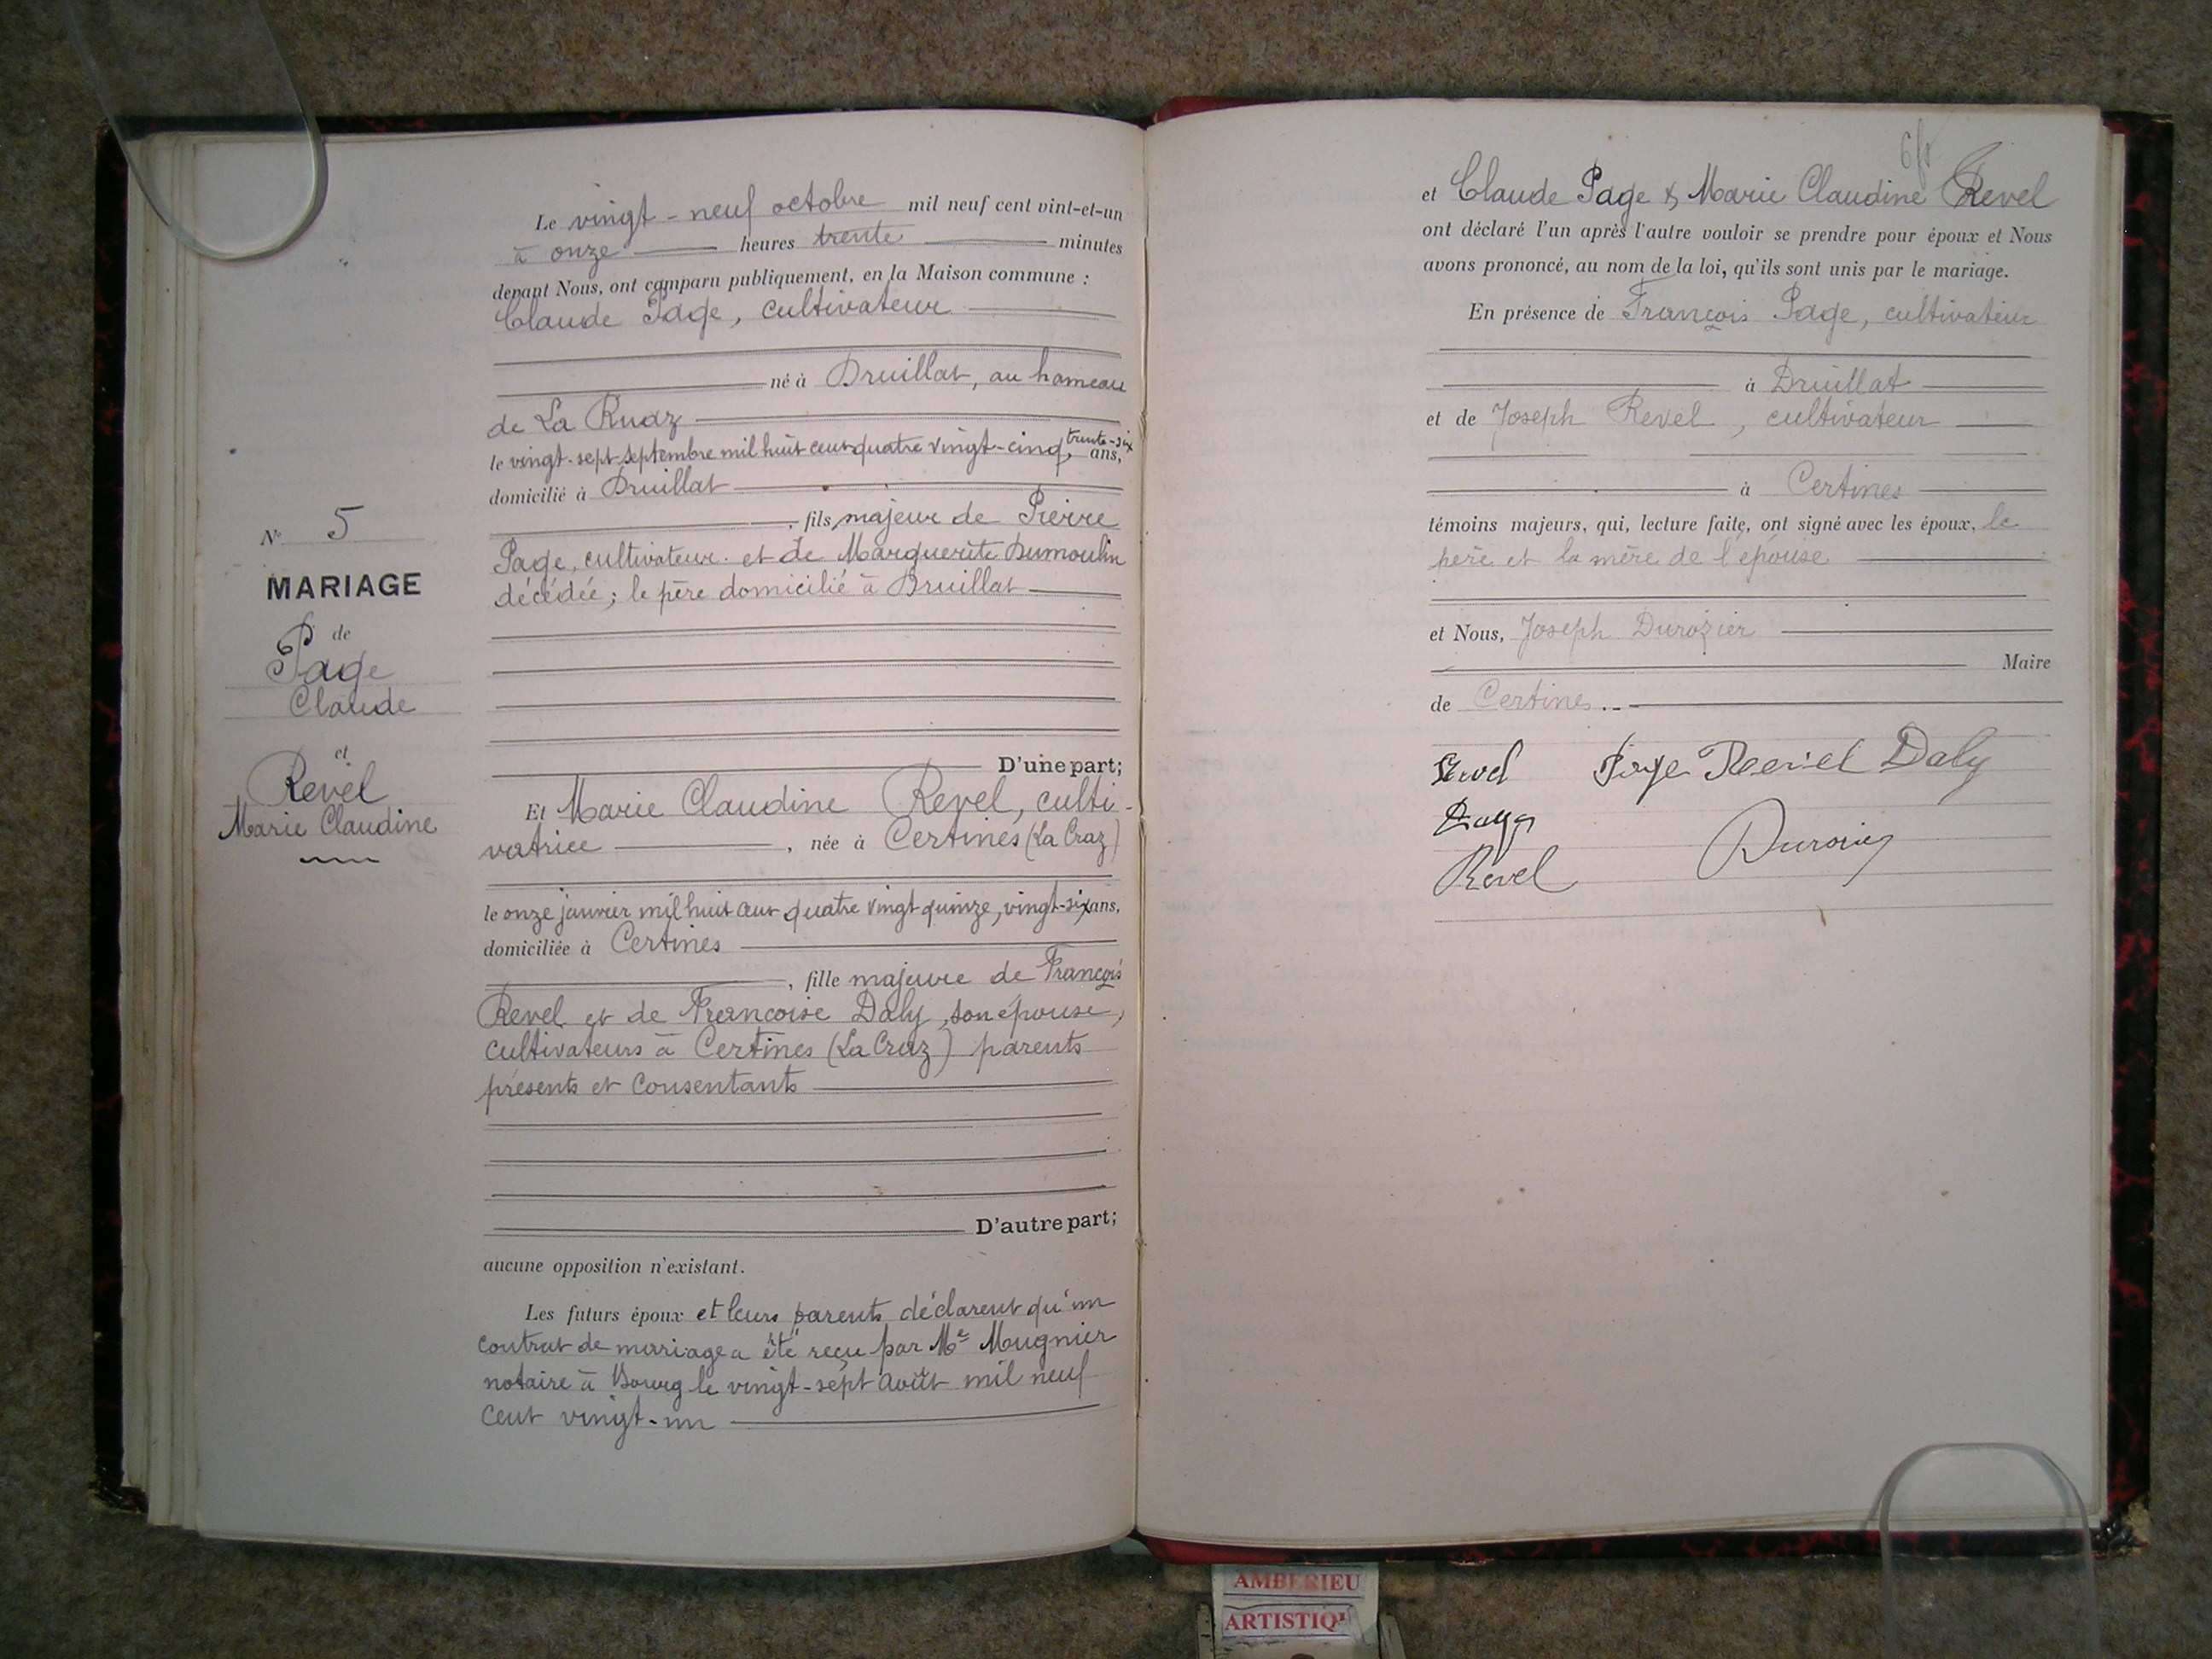 N° 5
MARIAGE
de
Page
Claude
et
Revel
Marie Claudine
Le vingt-neuf octobre mil neuf cent vint-et-un
à onze heures trente minutes
devant Nous, ont comparu publiquement, en la Maison commune :
Claude Page, cultivateur
né à Druillat, au hameau
de La Ruaz
le vingt-sept septembre mil huit cent quatre vingt-cinq, trente-six ans,
domicilié à Druillat
, fils majeur de Pierre
Page, cultivateur et de Marguerite Dumoulin
décédée; le père domicilié à Druillat
D'une part;
Et Marie Claudine Revel, culti-
vatrice , née à Certines (La Craz)
le onze janvier mil huit cent quatre vingt quinze, vingt-six ans,
domiciliée à Certines
, fille majeure de François
Revel et de Françoise Daly, son épouse,
cultivateurs à Certines (La Craz) parents
présents et consentants
D'autre part;
aucune opposition n'existant.
Les futurs époux et leurs parents déclarent qu'un
contrat de mariage a été reçu par Me Mugnier
notaire à Bourg le vingt-sept août mil neuf
cent vingt-un
et Claude Page & Marie Claudine Revel
ont déclaré l'un après l'autre vouloir se prendre pour époux et Nous
avons prononcé, au nom de la loi, qu'ils sont unis par le mariage.
En présence de François Page, cultivateur
à Druillat
et de Joseph Revel, cultivateur
à Certines
témoins majeurs, qui, lecture faite, ont signé avec les époux, le
père et la mère de l'épouse
et Nous, Joseph Durozier
Maire
de Certines
Revel Page Revel Daly
Page
Revel Durozier
AMBERIEU
ARTISTIQU